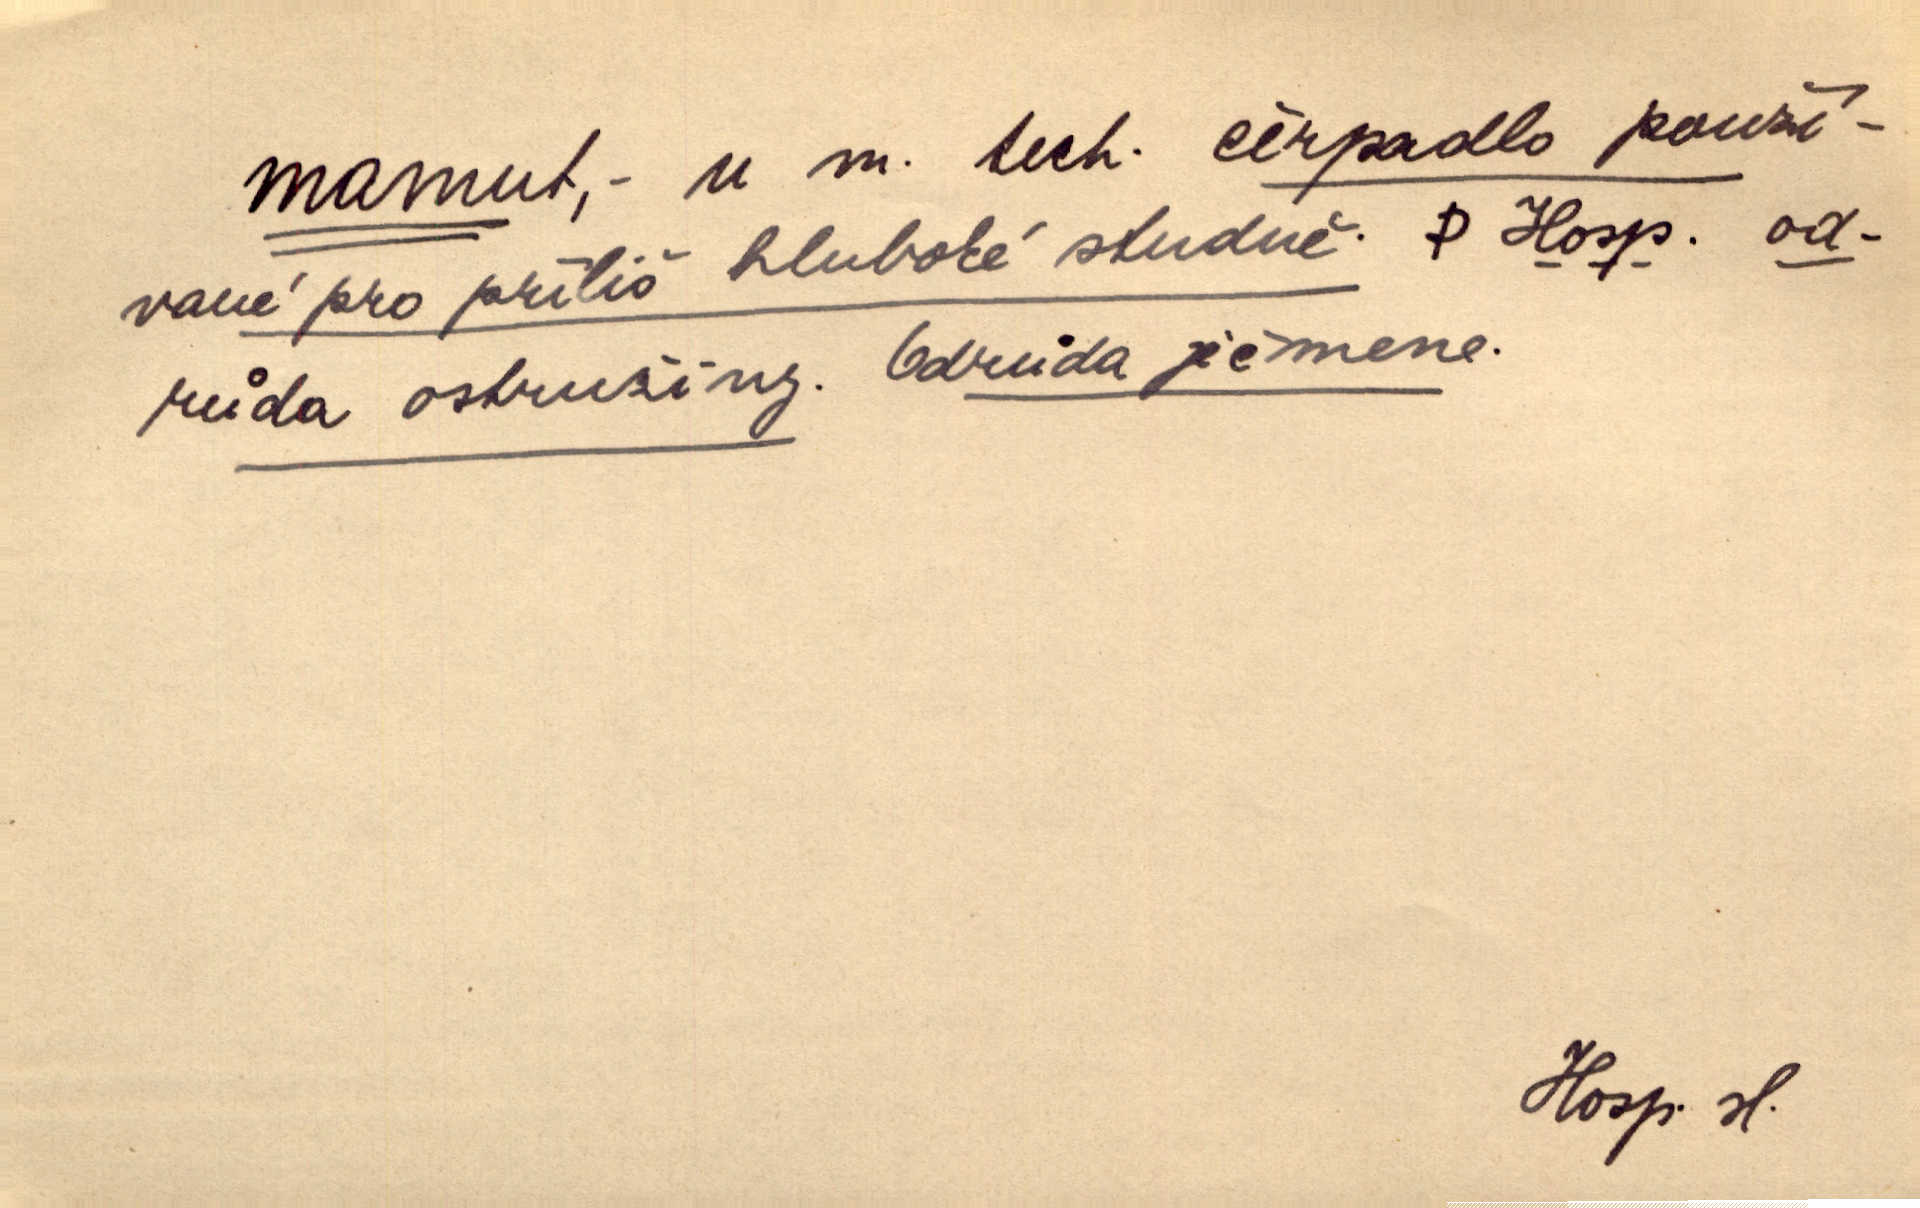 mamut,- u m. tech. čérpadlo použí-
vané pro příliš hluboké studně. P Hosp. od-
růda ostružiny. Odrůda ječmene.
Hosp. sl.